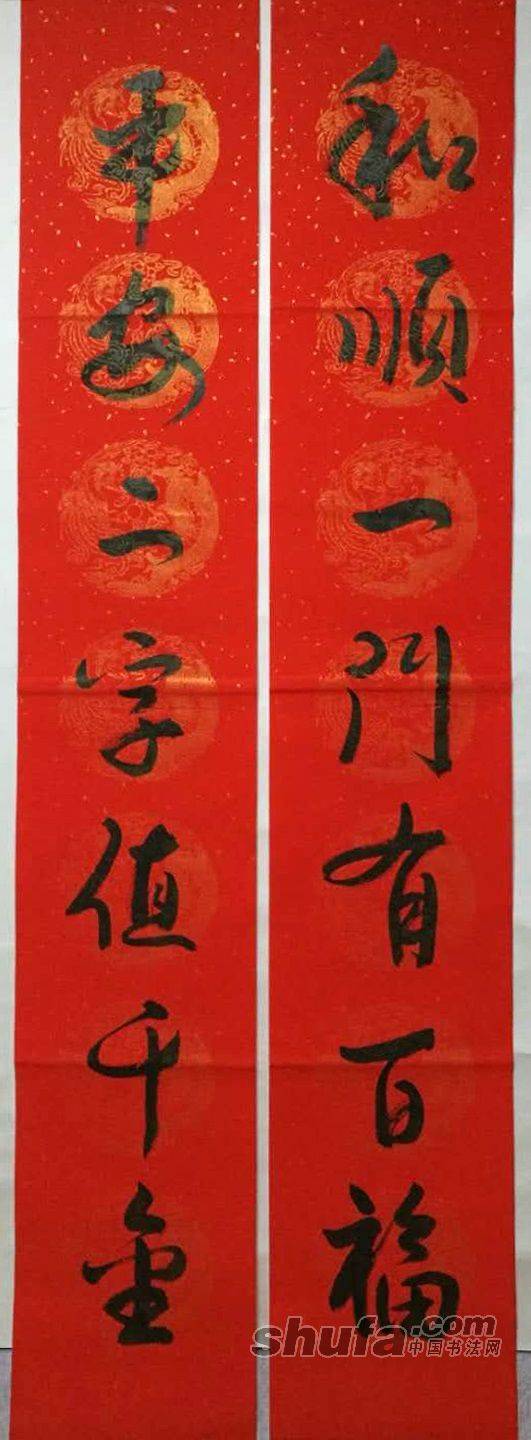 和順一門有百福
平安二字值千金
shufa.com
中国书法网